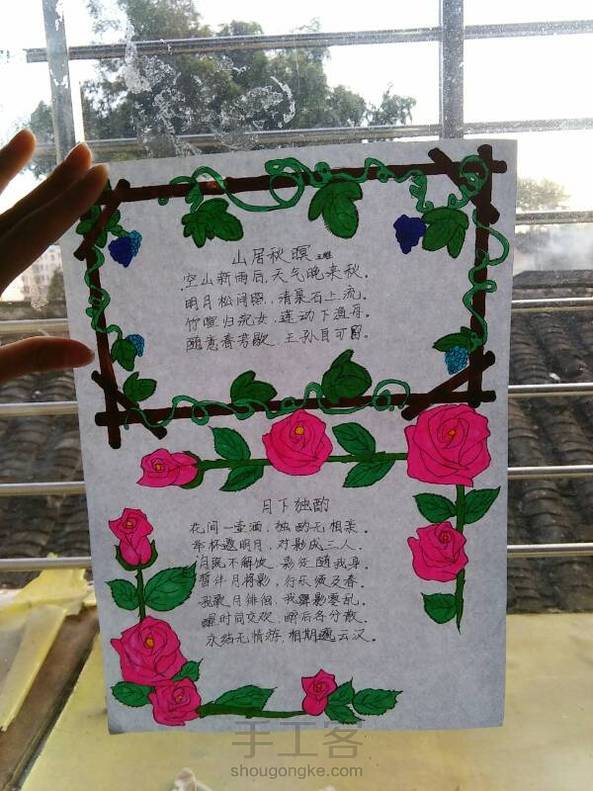 山居秋暝 王维
空山新雨后，天气晚来秋。
明月松间照，清泉石上流。
竹喧归浣女，莲动下渔舟。
随意春芳歇，王孙自可留。
月下独酌
花间一壶酒，独酌无相亲。
举杯邀明月，对影成三人。
月既不解饮 影徒随我身。
暂伴月将影，行乐须及春。
我歌月徘徊，我舞影零乱。
醒时同交欢，醉后各分散。
永结无情游，相期邈云汉。
手工客
shougongke.com